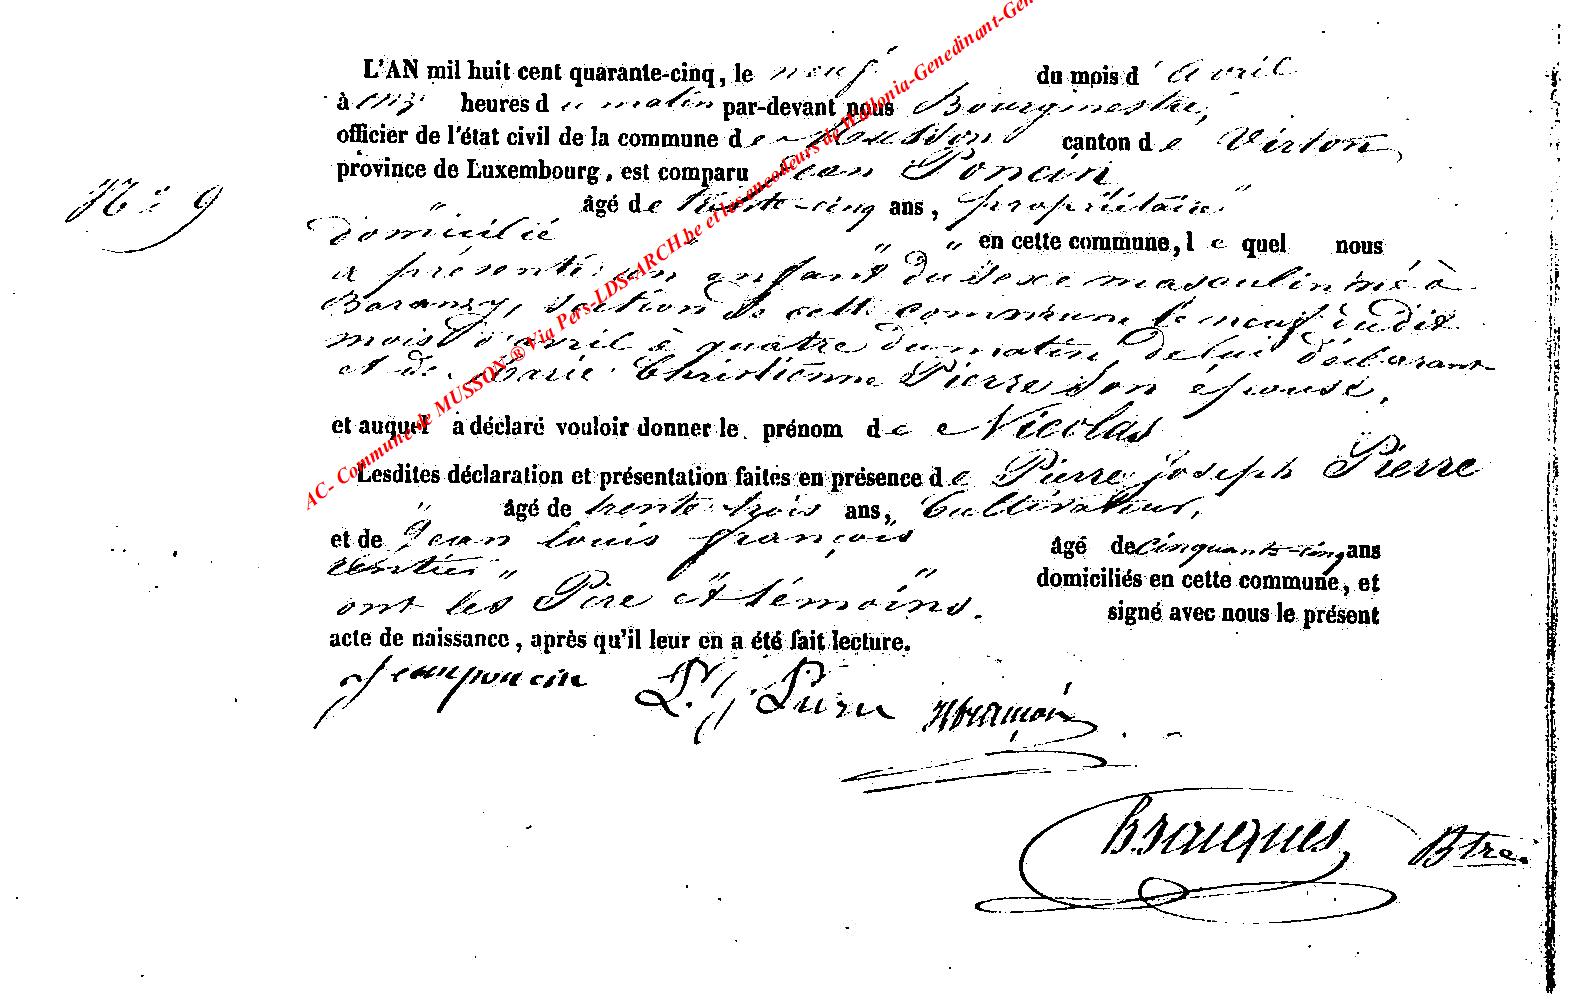 L'AN mil huit cent quarante-cinq, le neuf du mois d'Avril
à onze heures du matin par-devant nous Bourgmestre,
officier de l'état civil de la commune de Musson canton de Virton
province de Luxembourg, est comparu Jean Poncin
N° 9
" âgé de trente-cinq ans, propriétaire "
domicilié " " " en cette commune, lequel nous
a présenté un enfant du sexe masculin né à
Baranzy, section de cette commune le neuf du dit
mois d'avril à quatre du matin, de lui déclarant
et de Marie Christienne Pierre son épouse,
et auquel a déclaré vouloir donner le prénom de Nicolas
Lesdites déclaration et présentation faites en présence de Pierre Joseph Pierre
" âgé de trente-trois ans, Cultivateur,
et de Jean Louis françois âgé de cinquante-cinq ans
rentier " " " domiciliés en cette commune, et
ont les Père et témoins. signé avec nous le présent
acte de naissance, après qu'il leur en a été fait lecture.
Jean poncin P. J. Pierre
Btre.
AC- Commune de MUSSON ® Via Pers-LDS-ARCH.be et les encodeurs de Wallonia-Genedinant-Gen